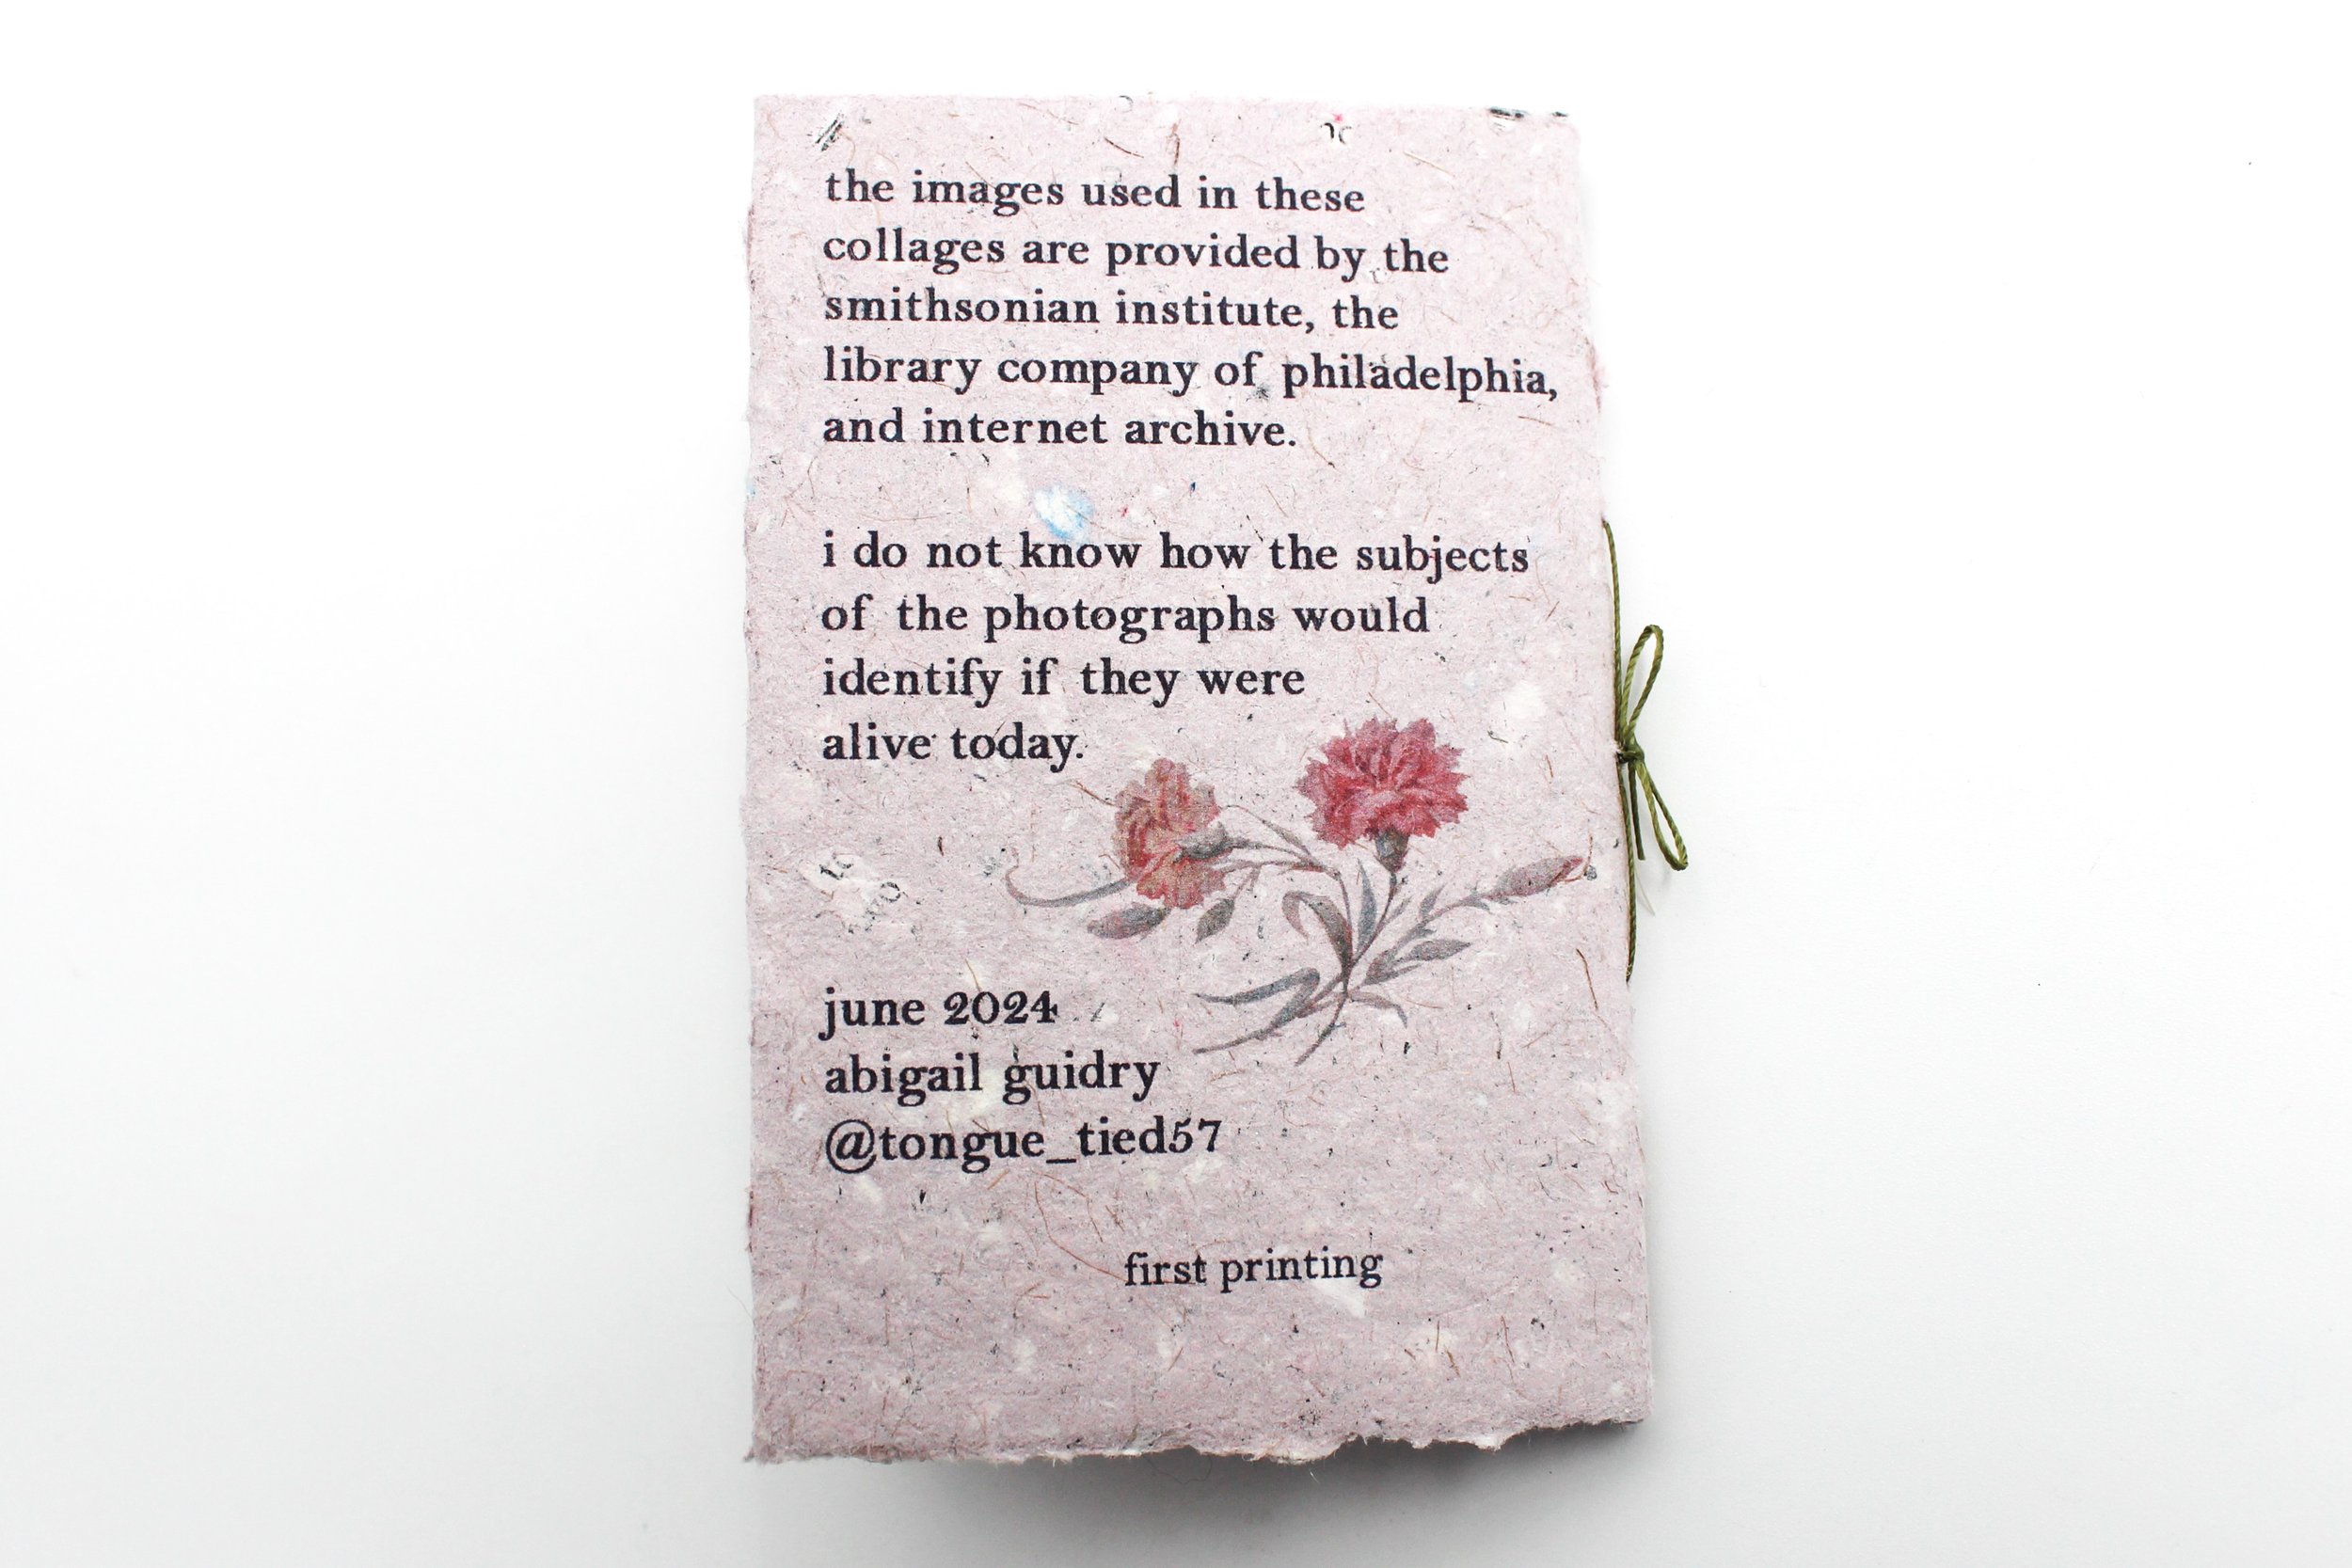 the images used in these
collages are provided by the
smithsonian institute, the
library company of philadelphia,
and internet archive.
i do not know how the subjects
of the photographs would
identify if they were
alive today.
june 2024
abigail guidry
@tongue_tied57
first printing